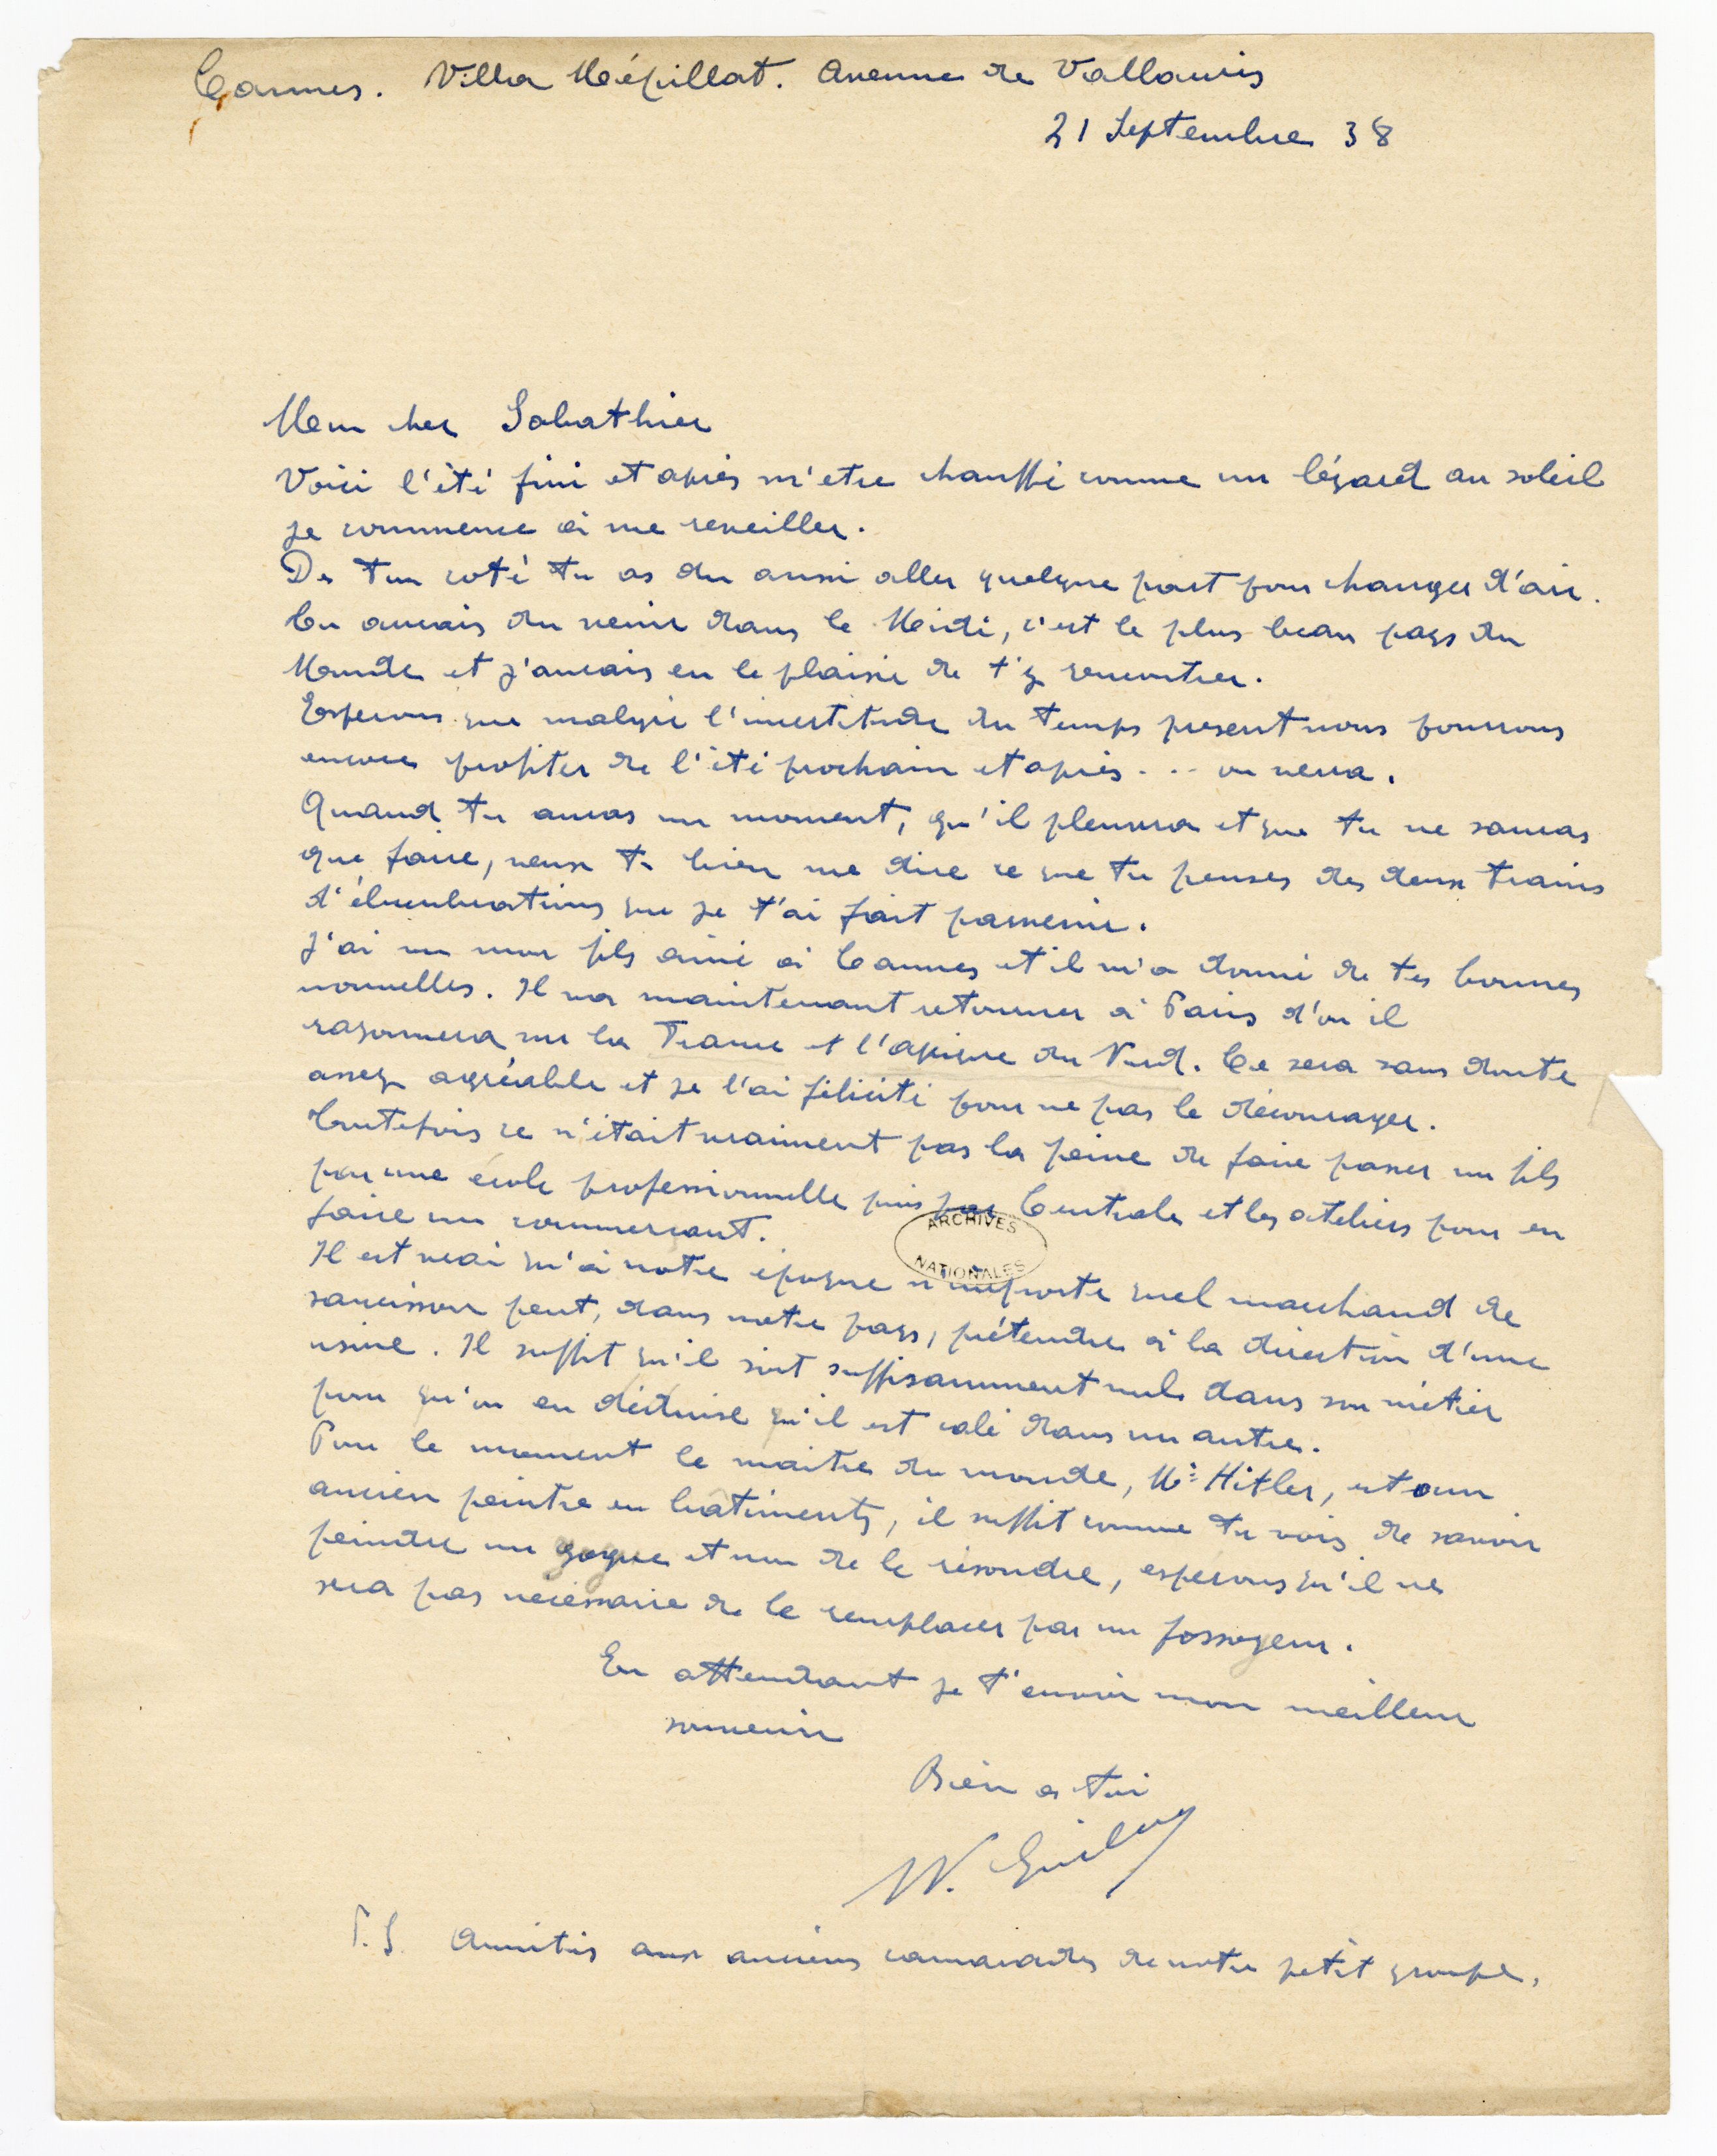 Cannes. Villa Mépillat. Avenue de Vallauris
21 Septembre 38
Mon cher Sabathier
Voici l'été fini et après m'etre chauffé comme un lézard au soleil
je commence à me reveiller.
De ton coté tu as du aussi aller quelque part pour changer d'air.
Tu aurais du venir dans le Midi, c'est le plus beau pays du
Monde et j'aurais eu le plaisir de t'y rencontrer.
Esperons que malgré l'incertitude du temps present nous pourrons
encore profiter de l'été prochain et après... on verra.
Quand tu auras un moment, qu'il pleuvra et que tu ne sauras
que faire, veux tu bien me dire ce que tu penses des deux trains
d'élucubrations que je t'ai fait parvenir.
J'ai vu mon fils ainé à Cannes et il m'a donné de tes bonnes
nouvelles. Il va maintenant retourner à Paris d'ou il
rayonnera sur la France et l'afrique du Nord. Ce sera sans doute
assez agréable et je l'ai félicité pour ne pas le décourager.
Toutefois ce n'était vraiment pas la peine de faire passer un fils
par une école professionnelle puis par Centrale et les ateliers pour en
faire un commercant.
Il est vrai qu'à notre époque n'importe quel marchand de
saucisson peut, dans notre pays, prétendre à la direction d'une
usine. Il suffit qu'il soit suffisamment nul dans son métier
pour qu'on en déduise qu'il est calé dans un autre.
Pour le moment le maitre du monde, Mr Hitler, est un
ancien peintre en batiments, il suffit comme tu vois de savoir
peindre un gogue et non de le résoudre, esperons qu'il ne
sera pas nécessaire de le remplacer par un fossoyeur.
En attendant je t'envoie mon meilleur
souvenir
Bien à toi
W.
P.S. Amitiés aux anciens camarades de notre petit groupe.
ARCHIVES
NATIONALES